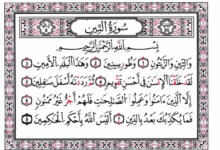 سُورَةُ التِّينِ
بِسْمِ اللَّهِ الرَّحْمَٰنِ الرَّحِيمِ
وَالتِّينِ وَالزَّيْتُونِ ۝ وَطُورِ سِينِينَ ۝ وَهَٰذَا الْبَلَدِ الْأَمِينِ ۝
لَقَدْ خَلَقْنَا الْإِنسَٰنَ فِي أَحْسَنِ تَقْوِيمٍ ۝ ثُمَّ رَدَدْنَٰهُ أَسْفَلَ سَٰفِلِينَ ۝
إِلَّا الَّذِينَ ءَامَنُوا وَعَمِلُوا الصَّٰلِحَٰتِ فَلَهُمْ أَجْرٌ غَيْرُ مَمْنُونٍ ۝
فَمَا يُكَذِّبُكَ بَعْدُ بِالدِّينِ ۝ أَلَيْسَ اللَّهُ بِأَحْكَمِ الْحَٰكِمِينَ ۝